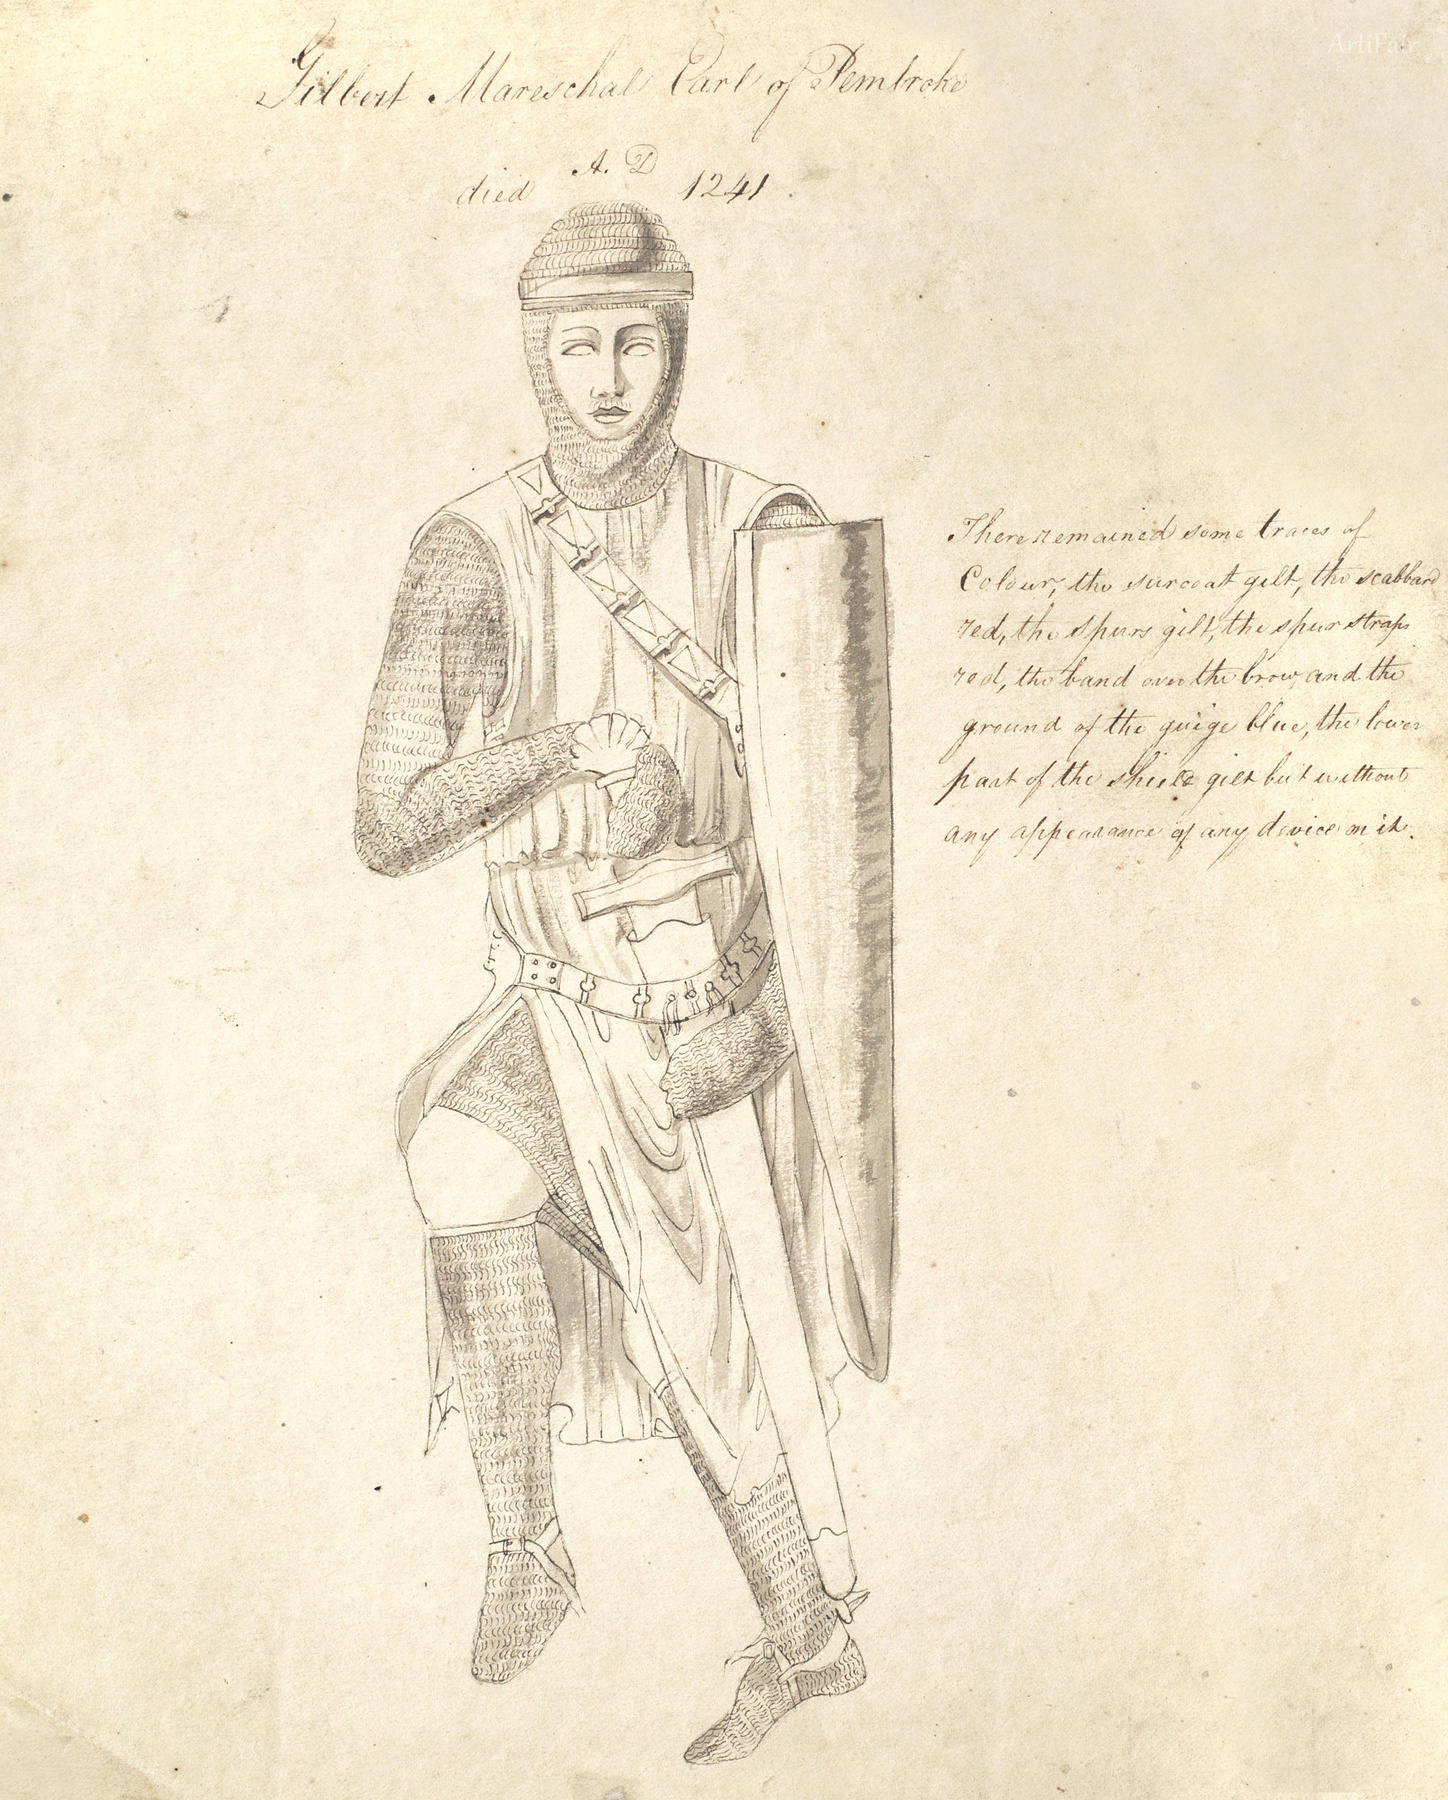 Gilbert Mareschal Earl of Pembroke
died A. D 1241.
There remained some traces of
Colour, the surcoat gilt, the scabbard
red, the spurs gilt, the spur straps
red, the band over the brow, and the
ground of the guige blue, the lower
part of the shield gilt but without
any appearance of any device on it.
ArtiFair